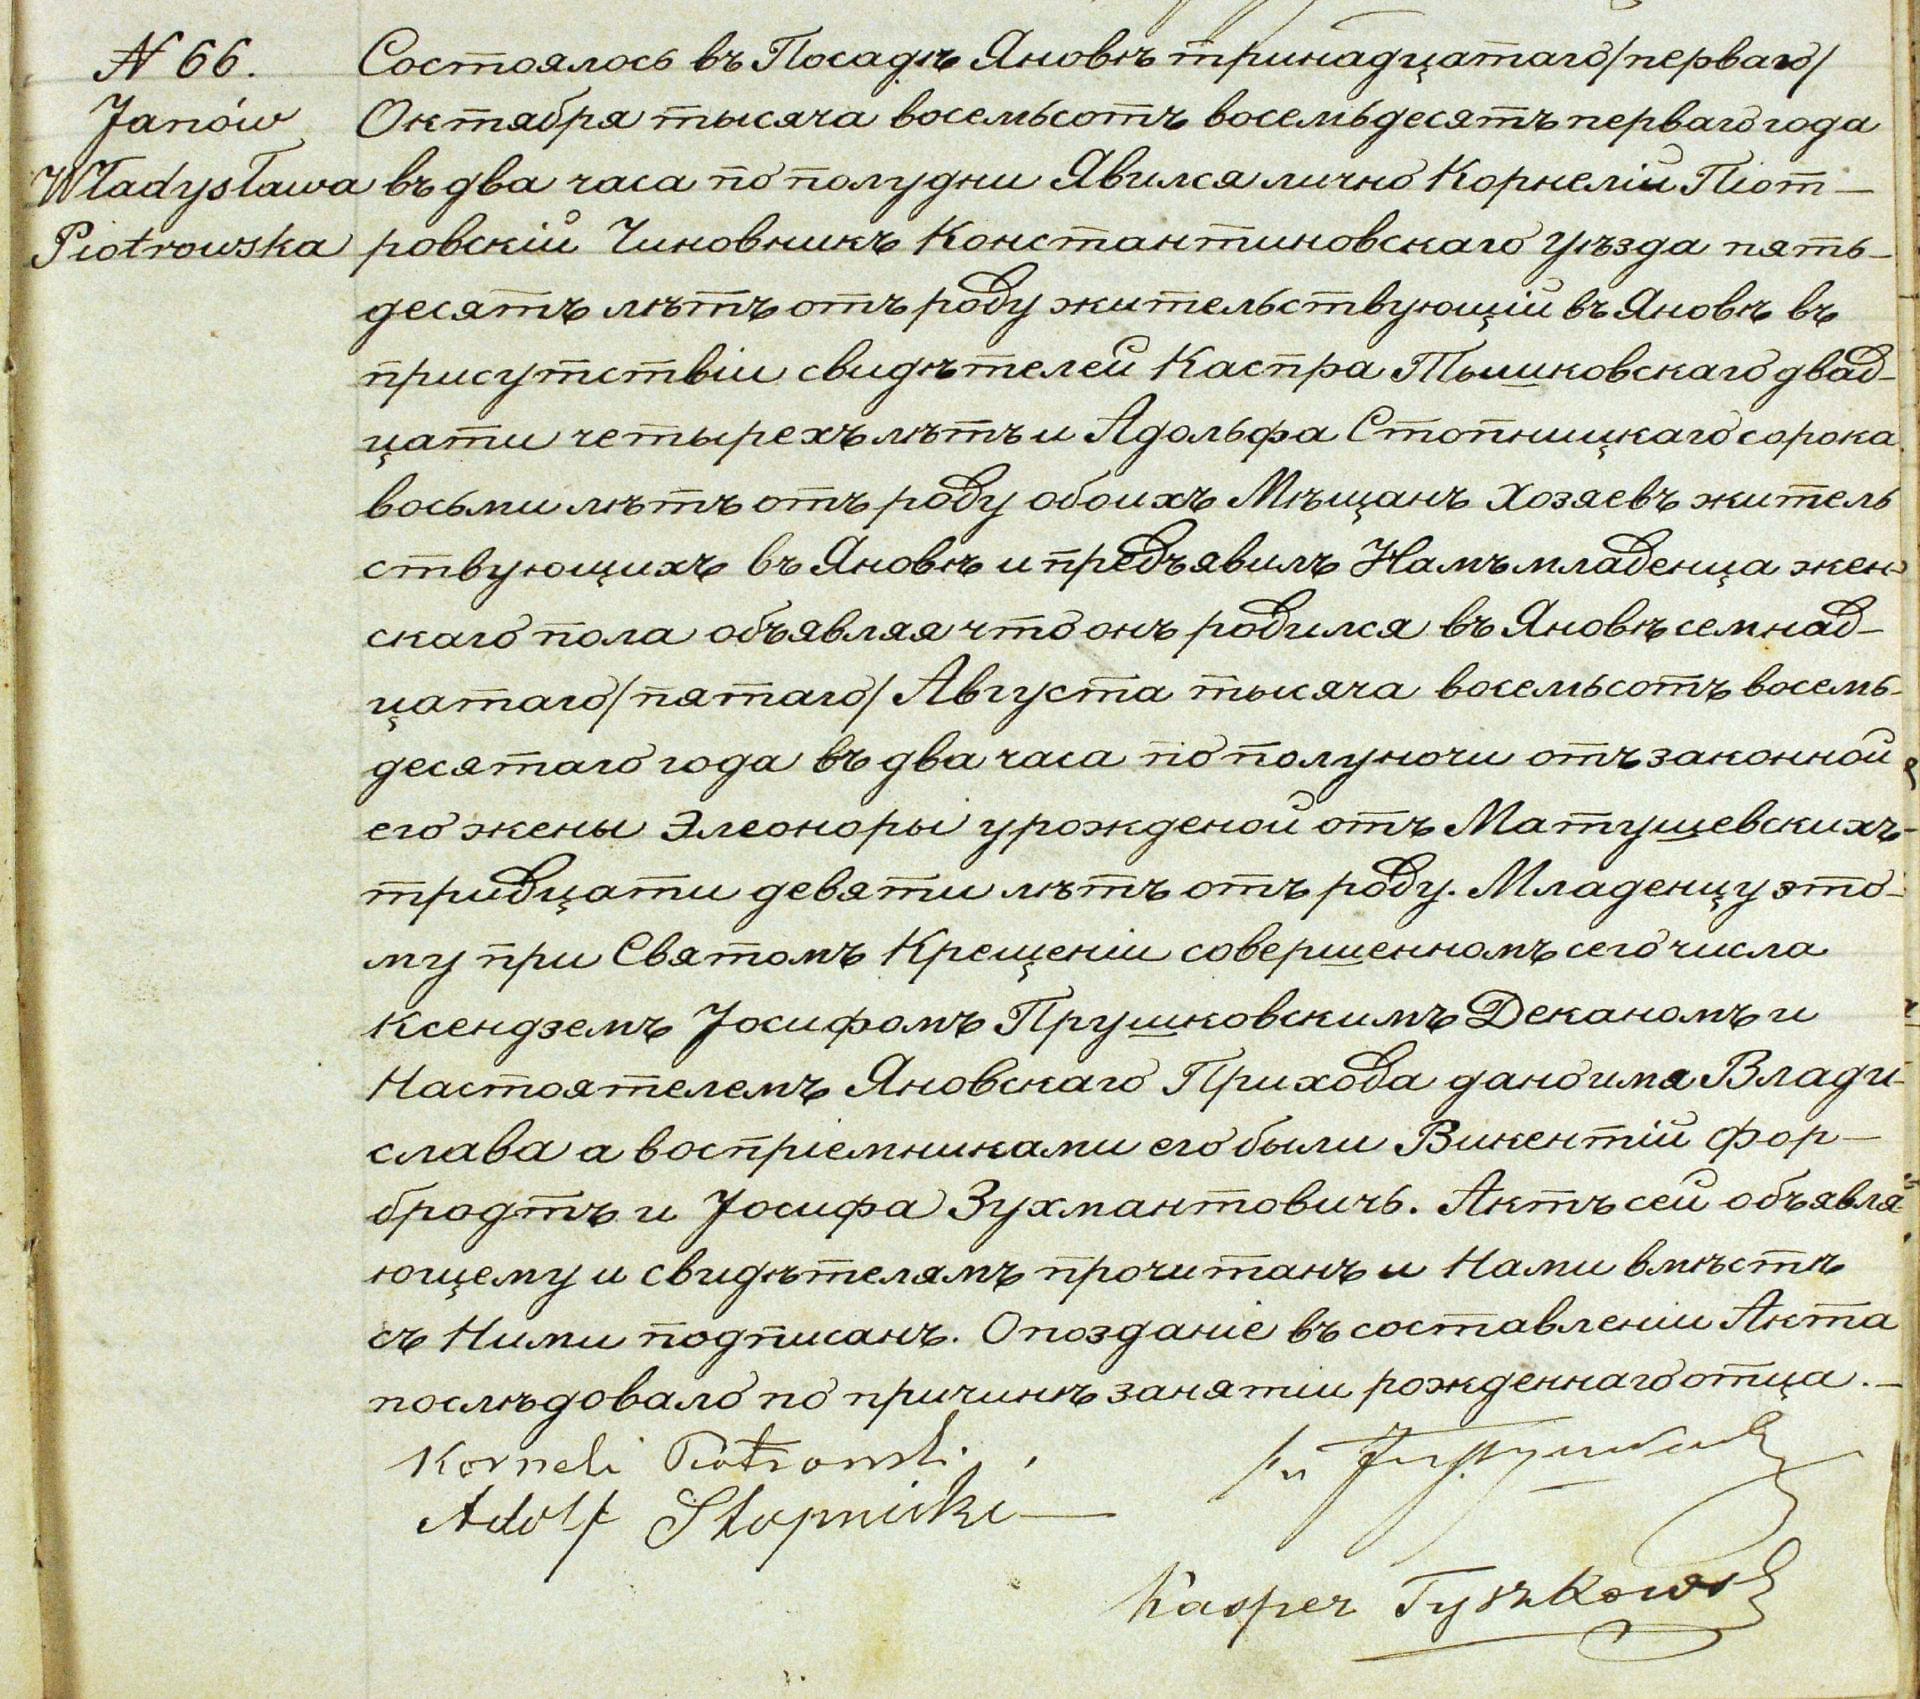 N 66.
Janów
Władysława
Piotrowska
Состоялось въ Посадѣ Яновѣ тринадцатаго/перваго/
Октября тысяча восемьсотъ восемьдесятъ перваго года
въ два часа по полудни Явился лично Корнелій Піот-
ровскій Чиновникъ Константиновскаго уѣзда пять-
десятъ лѣтъ отъ роду жительствующій въ Яновѣ въ
присутствіи свидѣтелей Каспра Тышковскаго двад-
цати четырехъ лѣтъ и Адольфа Стопницкаго сорока
восьми лѣтъ отъ роду обоихъ Мѣщанъ Хозяевъ житель
ствующихъ въ Яновѣ и предъявилъ Намъ младенца жен-
скаго пола объявляя что онъ родился въ Яновѣ семнад-
цатаго/пятаго/ Августа тысяча восемьсотъ восемь-
десятаго года въ два часа по полуночи отъ законной
его жены Элеоноры урожденой отъ Матушевскихъ-
тридцати девяти лѣтъ отъ роду. Младенцу это-
му при Святомъ Крещеніи совершенномъ сего числа
Ксендземъ Іосифомъ Прушковскимъ Деканомъ и
Настоятелемъ Яновскаго Прихода дано имя Влади-
слава а воспріемниками его были Викентій Фор-
бродтъ и Іосифа Зухмантовичъ. Актъ сей объявля-
ющему и свидѣтелямъ прочитанъ и Нами вмѣстѣ
съ Ними подписанъ. Опозданіе въ составленіи Акта
послѣдовало по причинѣ занятіи рожденнаго отца.-
Korneli Piotrowski
Adolf Stopnicki
Kasper Tyszkowski